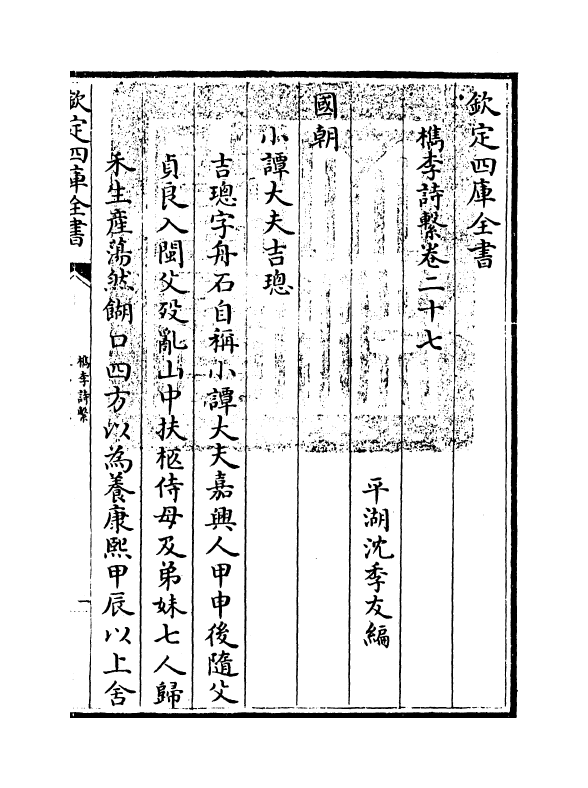 欽定四庫全書
檇李詩繫卷二十七
平湖沈季友編
國朝
小譚大夫吉璁
吉璁字舟石自稱小譚大夫嘉興人甲申後隨父
貞良入閩父歿亂山中扶柩侍母及弟妹七人歸
禾生產蕩然餬口四方以為養康熙甲辰以上舍
欽定四庫全書
檇李詩繫
一